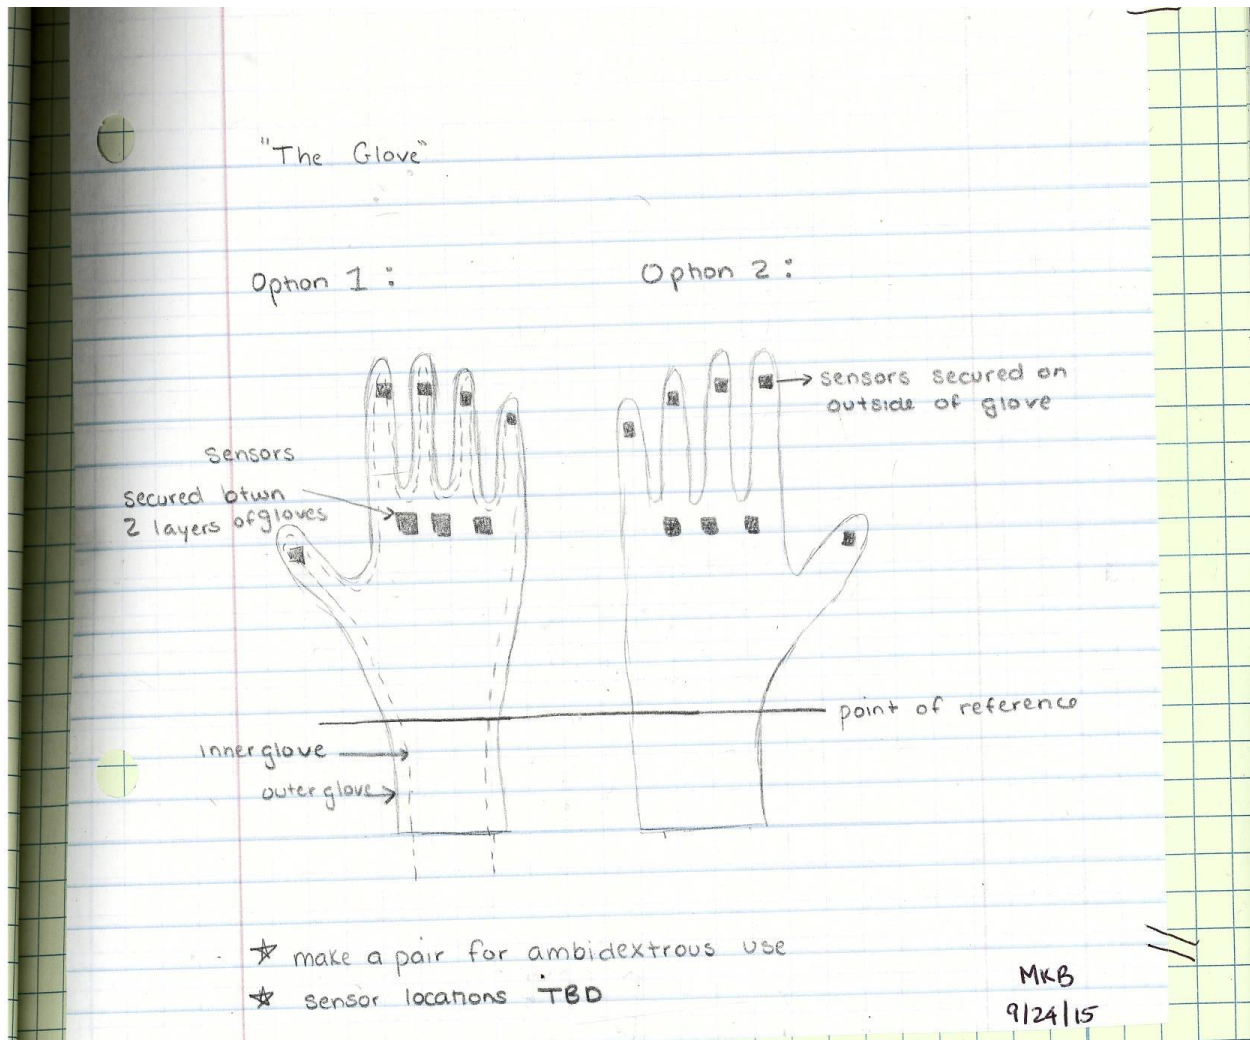 "The Glove"
Option 1 :
Option 2 :
sensors secured on
outside of glove
sensors
secured btwn
2 layers of gloves
point of reference
inner glove
outer glove
☆ make a pair for ambidextrous use
☆ sensor locations TBD
MKB
9/24/15